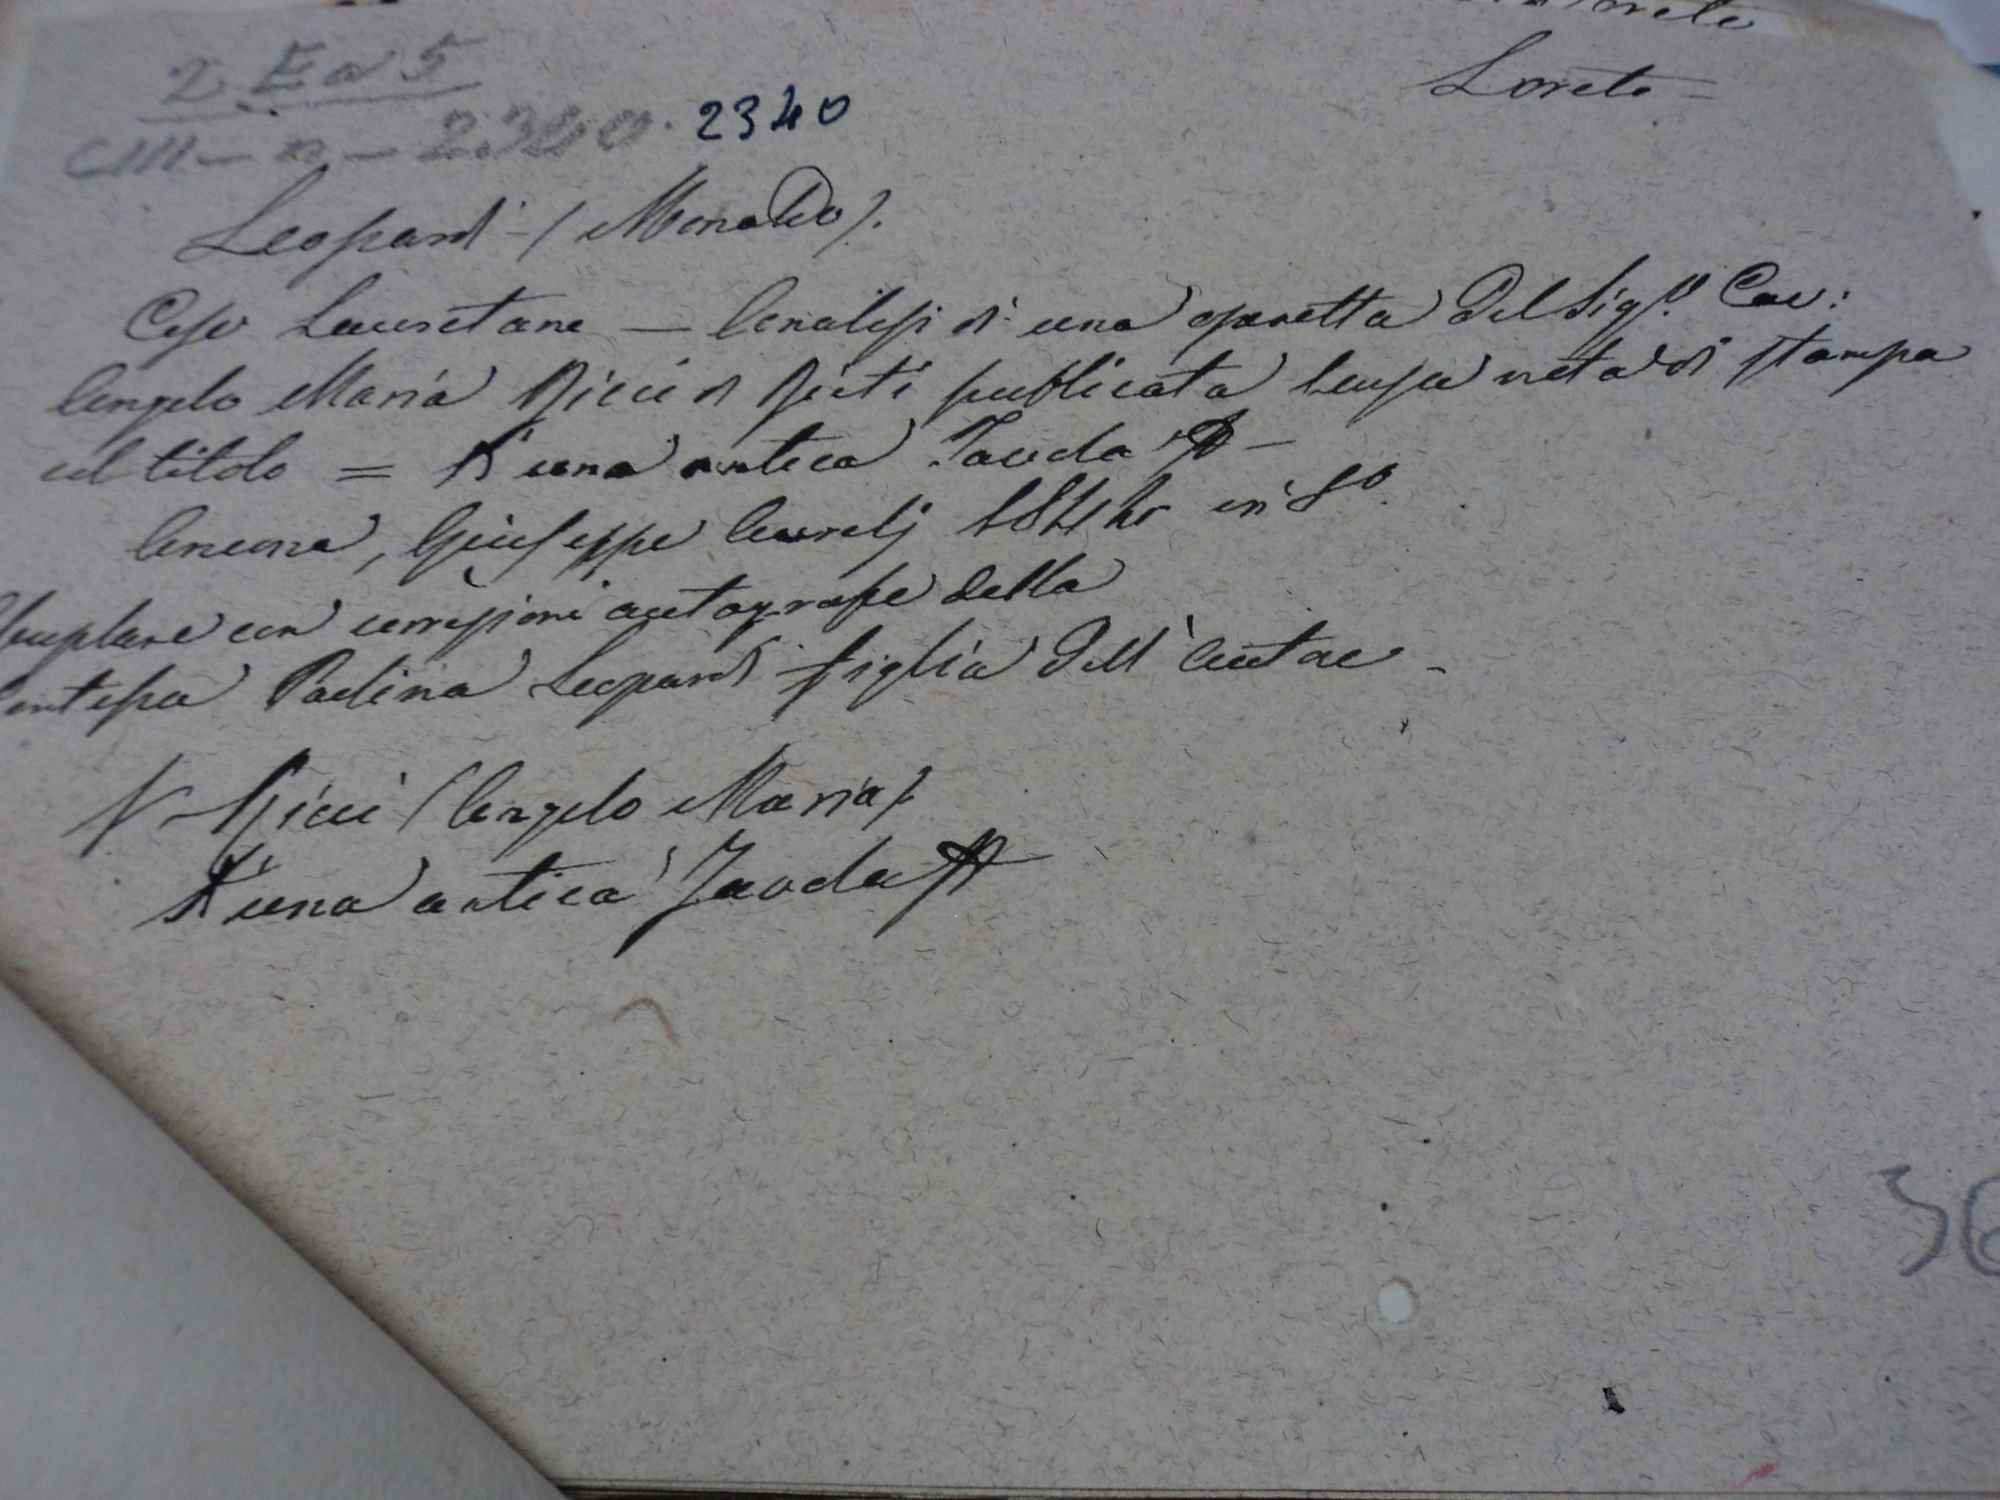 Loreto =
2 E a 5
2340. 2340
Leopardi (Monaldo).
Case Lauretane — Analisi di una operetta del Sigr. Cav:
Angelo Maria Ricci di Rieti publicata senza nota di stampa
col titolo = D'una antica Tavola —
Ancona, Giuseppe Aurelj in 8º.
con correzioni autografe della
Contessa Paolina Leopardi figlia dell'Autore -
V Ricci (Angelo Maria).
D'una antica Tavola
36